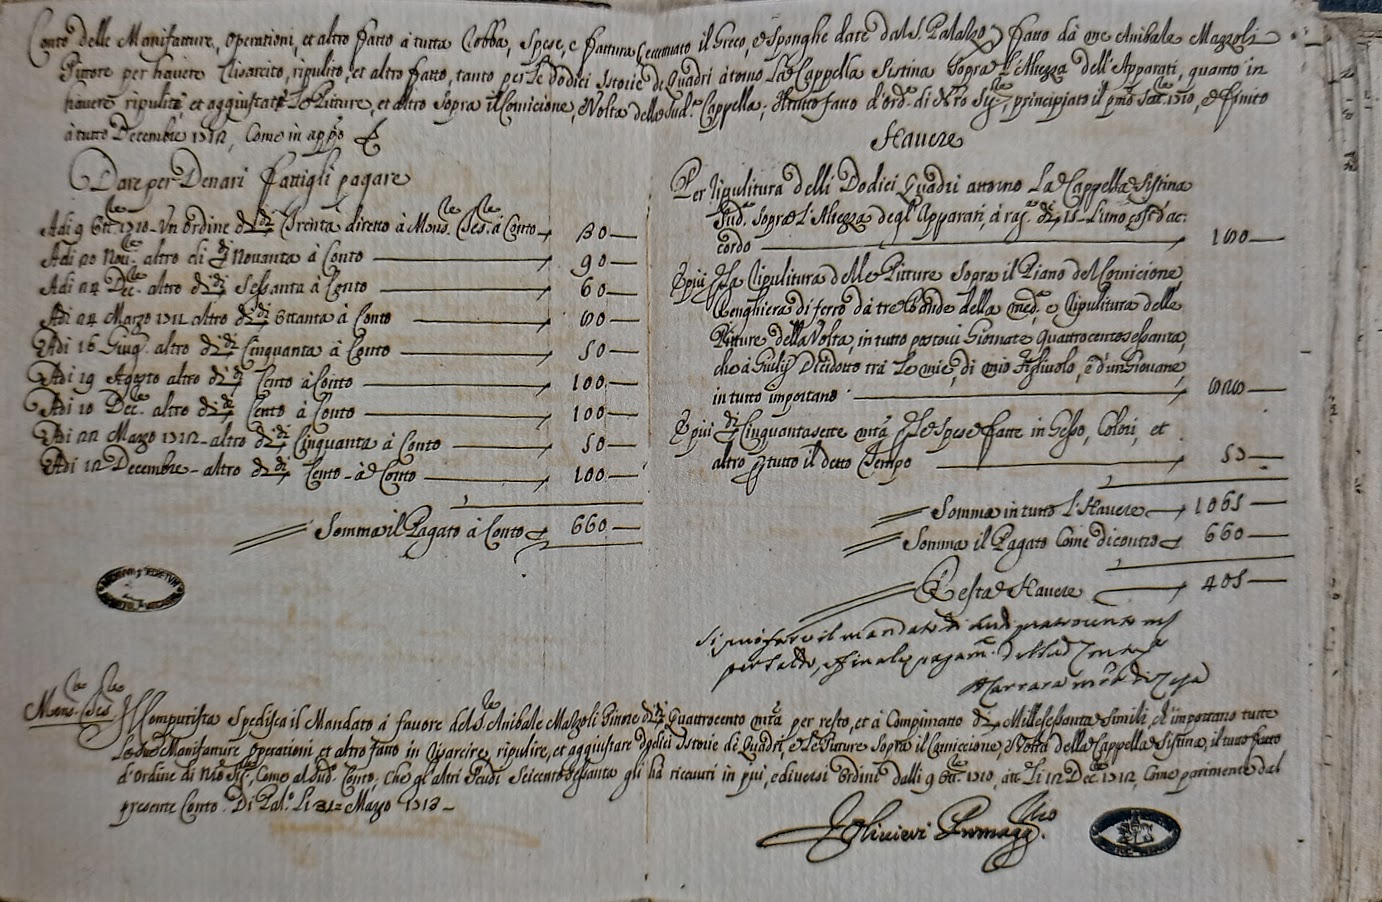 Conto delle Manifatture, operationi, et altro fatto à tutta Robba, Spese, e fattura, eccettuato il Greco, e Sponghe date dal S. Palazzo, fatto dà me Anibale Mazzoli
Pittore per havere risarcito, ripulito, et altro fatto, tanto per le dodici Istorie di Quadri à torno La Cappella Sistina Sopra L'Altezza dell'Apparati, quanto in
havere ripulite, et aggiustate Le Pitture, et altro Sopra il Cornicione, e Volta della Sud.ª Cappella; Il tutto fatto d'ord.e di N'ro Sig.re, principiato il p'mo Sett.re 1710, e finito
à tutto Decembre 1712, Come in app.o
Dare per Denari fattigli pagare
Adi 9 Ott.re 1710 - Un ordine di Trenta diretto à Mons. à Conto 30
Adi 20 Nov.re altro di Novanta à Conto 90
Adi 24 Dec.re altro di Sessanta à Conto 60
Adi 24 Marzo 1711 altro di Ottanta à Conto 80
Adi 16 Giug.o altro di Cinquanta à Conto 50
Adi 19 Agosto altro di Cento à Conto 100
Adi 10 Dec.re altro di Cento à Conto 100
Adi 22 Marzo 1712 - altro di Cinquanta à Conto 50
Adi 12 Decembre - altro di Cento - à Conto 100
Somma il Pagato à Conto 660
Havere
Per ripulitura delli Dodici Quadri attorno La Cappella Sistina
Sud.ª Sopra L'Altezza degl'Apparati, à rag.e di 15 - L'uno così d'ac:
cordo 180
E più p La ripulitura delle Pitture Sopra il Piano del Cornicione,
Renghiera di ferro dà tre Bande della med.ª e ripulitura delle
Pitture della Volta, in tutto postovi Giornate Quattrocentosessanta,
che à Giulij Dicidotto trà Le mie, di mio Figliuolo, e d'un Giovane,
in tutto importano 828
E più Cinquantasette m'ta p Le Spese fatte in Gesso, Colori, et
altro p tutto il detto Tempo 57
Somma in tutto L'Havere 1065
Somma il Pagato Come di contro 660
Resta d'Havere 405
Si può fare il mandato di quattrocento
per saldo, e finale pagam.to
Mons. Il Computista Spedisca il Mandato à favore del S. Anibale Mazzoli Pittore di Quattrocento m'ta per resto, et à Compimento di Millesessanta simili, ch'importano tutte
Le Sud.e Manifatture operationi, et altro fatto in risarcire, ripulire, et aggiustare dodici Istorie di Quadri, e Le Pitture Sopra il Cornicione, e Volta della Cappella Sistina, il tutto fatto
d'Ordine di N'ro Sig.re, Come al Sud.o Conto, Che gl'altri Scudi Seicentosessanta gli hà ricevuti in più, e diversi Ordini dalli 9 Ott.re 1710, à tt.o Li 12 Dec.re 1712, Come parimente dal
presente Conto. Di Pal.o Li 31 Marzo 1713 -
Olivieri